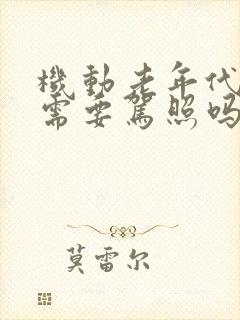 機動老年代
需要駕照吗
莫雷尔